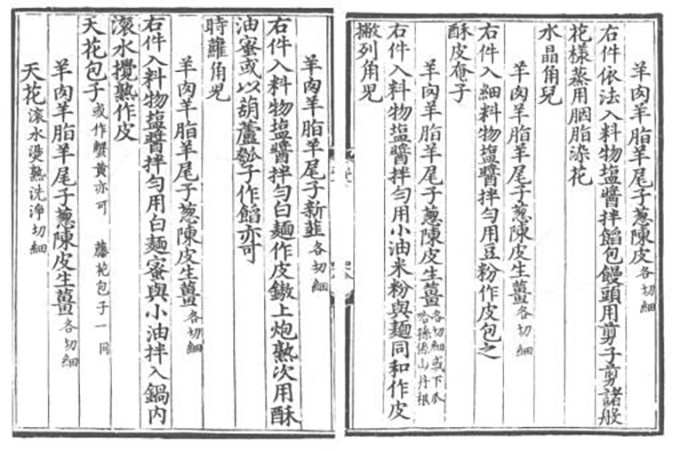 羊肉羊脂羊尾子葱陳皮各切細
右件依法入料物塩醬拌餡包饅頭用剪子剪諸般
花樣蒸用胭脂染花
水晶角兒
羊肉羊脂羊尾子葱陳皮生薑各切細
右件入細料物塩醬拌勻用豆粉作皮包之
酥皮奄子
羊肉羊脂羊尾子葱陳皮生薑各切細或下瓜
哈孫係山丹根
右件入料物塩醬拌勻用小油米粉與麵同和作皮
撇列角兒
羊肉羊脂羊尾子新韮各切細
右件入料物塩醬拌勻白麵作皮鏊上炮熟次用酥
油蜜或以葫蘆瓠子作餡亦可
時蘿角兒
羊肉羊脂羊尾子葱陳皮生薑各切細
右件入料物塩醬拌勻用白麵蜜與小油拌入鍋内
滾水攪熟作皮
天花包子或作蟹黃亦可 藤花包子一同
羊肉羊脂羊尾子葱陳皮生薑各切細
天花滾水燙熟洗淨切細